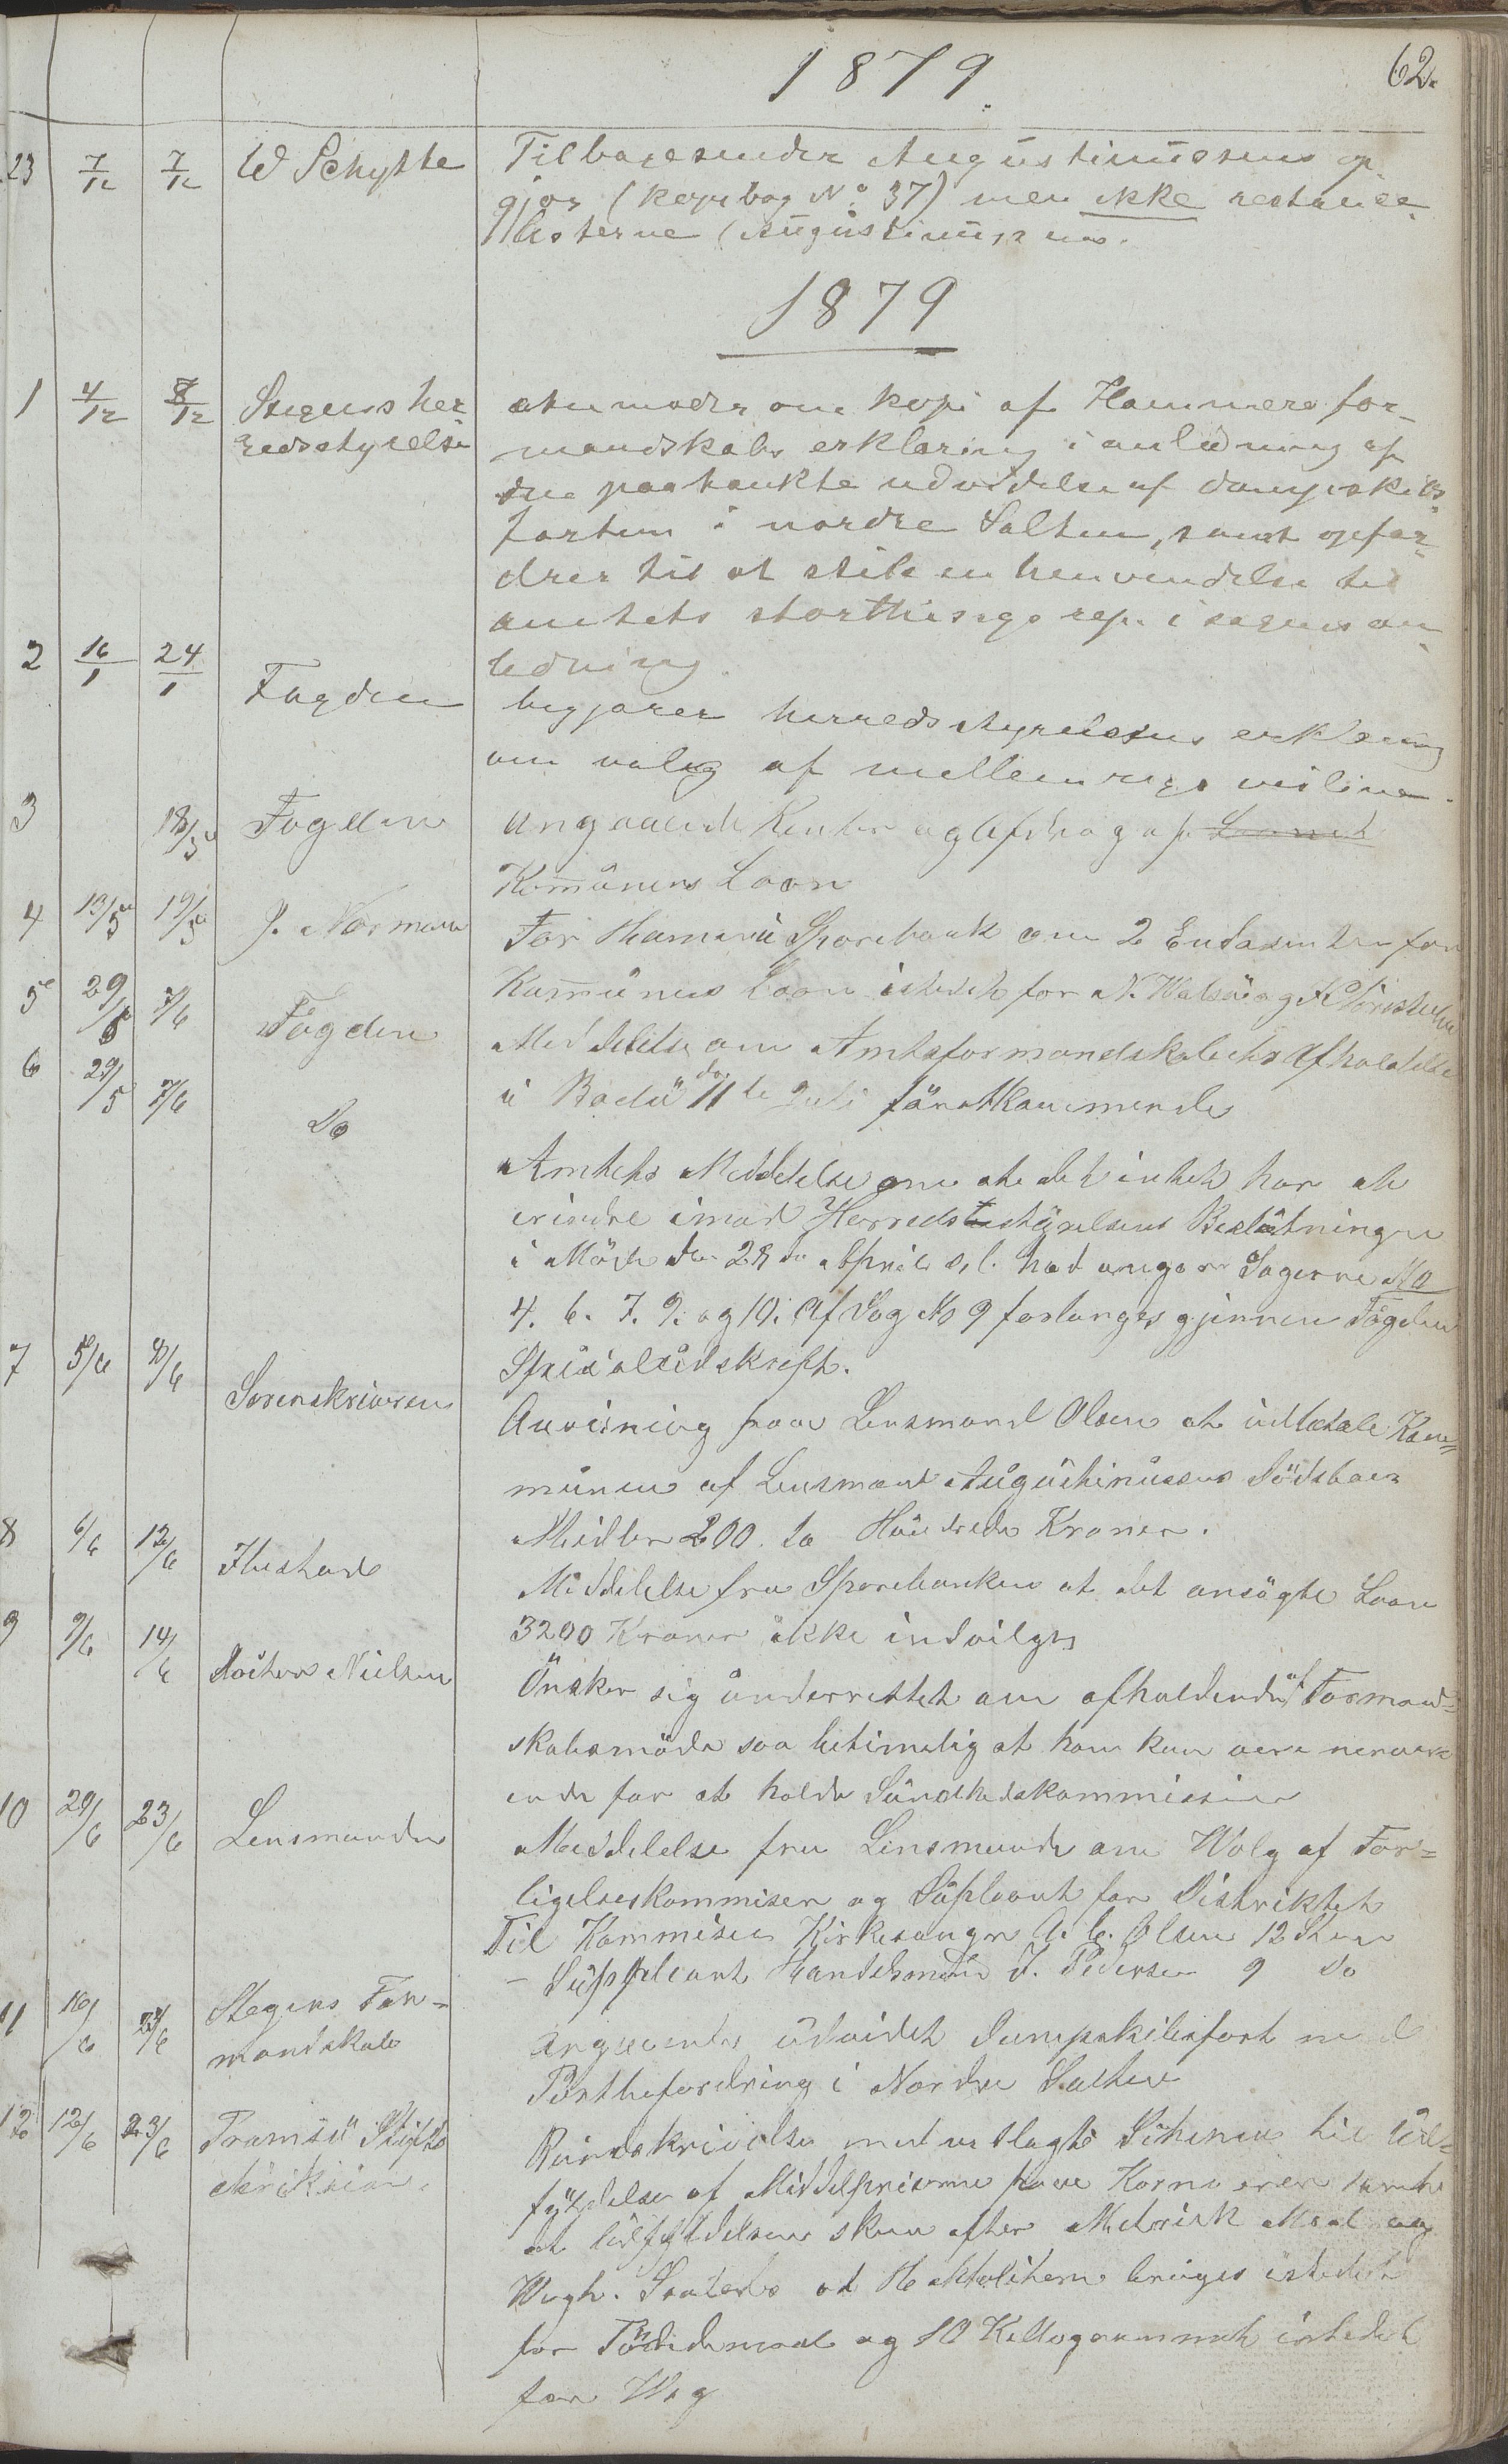 62.
1879.
23 7/12 7/12 W Schytte Tilbagesender Augustinussens op
gjør (kopibog No 37) men ikke restance
listerne (Augustinussens.
1879
1 4/12 8/12 Stegens her anmoder om kopi af Hammerø for-
redsstyrelse mandskabs erklæring i anledning af
den paatænkte udvidelse af dampskibs
farten i nordre Salten, samt opfor-
drer til at stile en henvendelse til
amtets storthings rep. i sagens an
ledning.
2 16/1 24/1 Fogden begjærer herredsstyrelsens erklæring
om valg af mellemrigs veiline.
3 18/5 Fogden Angaaende Renter og Afdrag af Laanet
Kommunens Laan
4 13/5 19/5 J. Normann For Hamarø Sparebank om 2 Endosenter for
Kommunens Laan istedet for N. Walsø og K.
5 29/5 7/6 Fogden Meddelelse om Amtsformandskabets Afholdelse
i Bodø den 11te Juli førstkommende
6 29/5 7/6 Do Amtets Meddelelse om at det intet har at
erindre imod Herredsstyrelsens Beslutninger
i Møde den 28de April d. l. hvad angaar Sagerne No
4. 6. 7. 9. og 10. Af Sag No 9 forlanges gjennem Fogden
Specialudskrift.
7 5/6 8/6 Sorenskriveren Anvisning paa Lensmand Olsen at indbetale Kom=
munen af Lensmand Augustinussens Dødsboes
Midler 200. to Hundrede Kroner.
8 6/6 12/6 Hustad Meddelelse fra Sparebanken at det ansøgte Laan
3200 Kroner ikke indvilges
9 9/6 14/6 Doktor Nielsen Ønsker sig underrettet om afholdendes af Formand=
skabsmøde saa betimelig at han kan være nærvær
ende for at holde Sundhedskommission
10 20/6 23/6 Lensmanden Meddelelse fra Lensmanden om Walg af For=
ligelseskommisær og Supleant for Distriktet
Til Kommisær Kirkesanger A. C. Olsen 12 Stem
- Suppleant Handelsmand J. Pedersen 9 Do
11 16/6 24/6 Stegens For= Angaaende udvidet Dampskibsfart med
mandskab Postbefordring i Nordre Salten
12 12/6 23/6 Tromsø Stifts Rundskrivelse med vedlagte Schema til Ud=
direktion. fyldelse af Middelpriserne paa Kornvarer samt
at Udfyldelsen skeer efter Metrisk Maal og
Wegt. Saaledes at Hektoliteren bruges istedet
for Tøndemaal og 10 Killogrammet istedet
for Wog